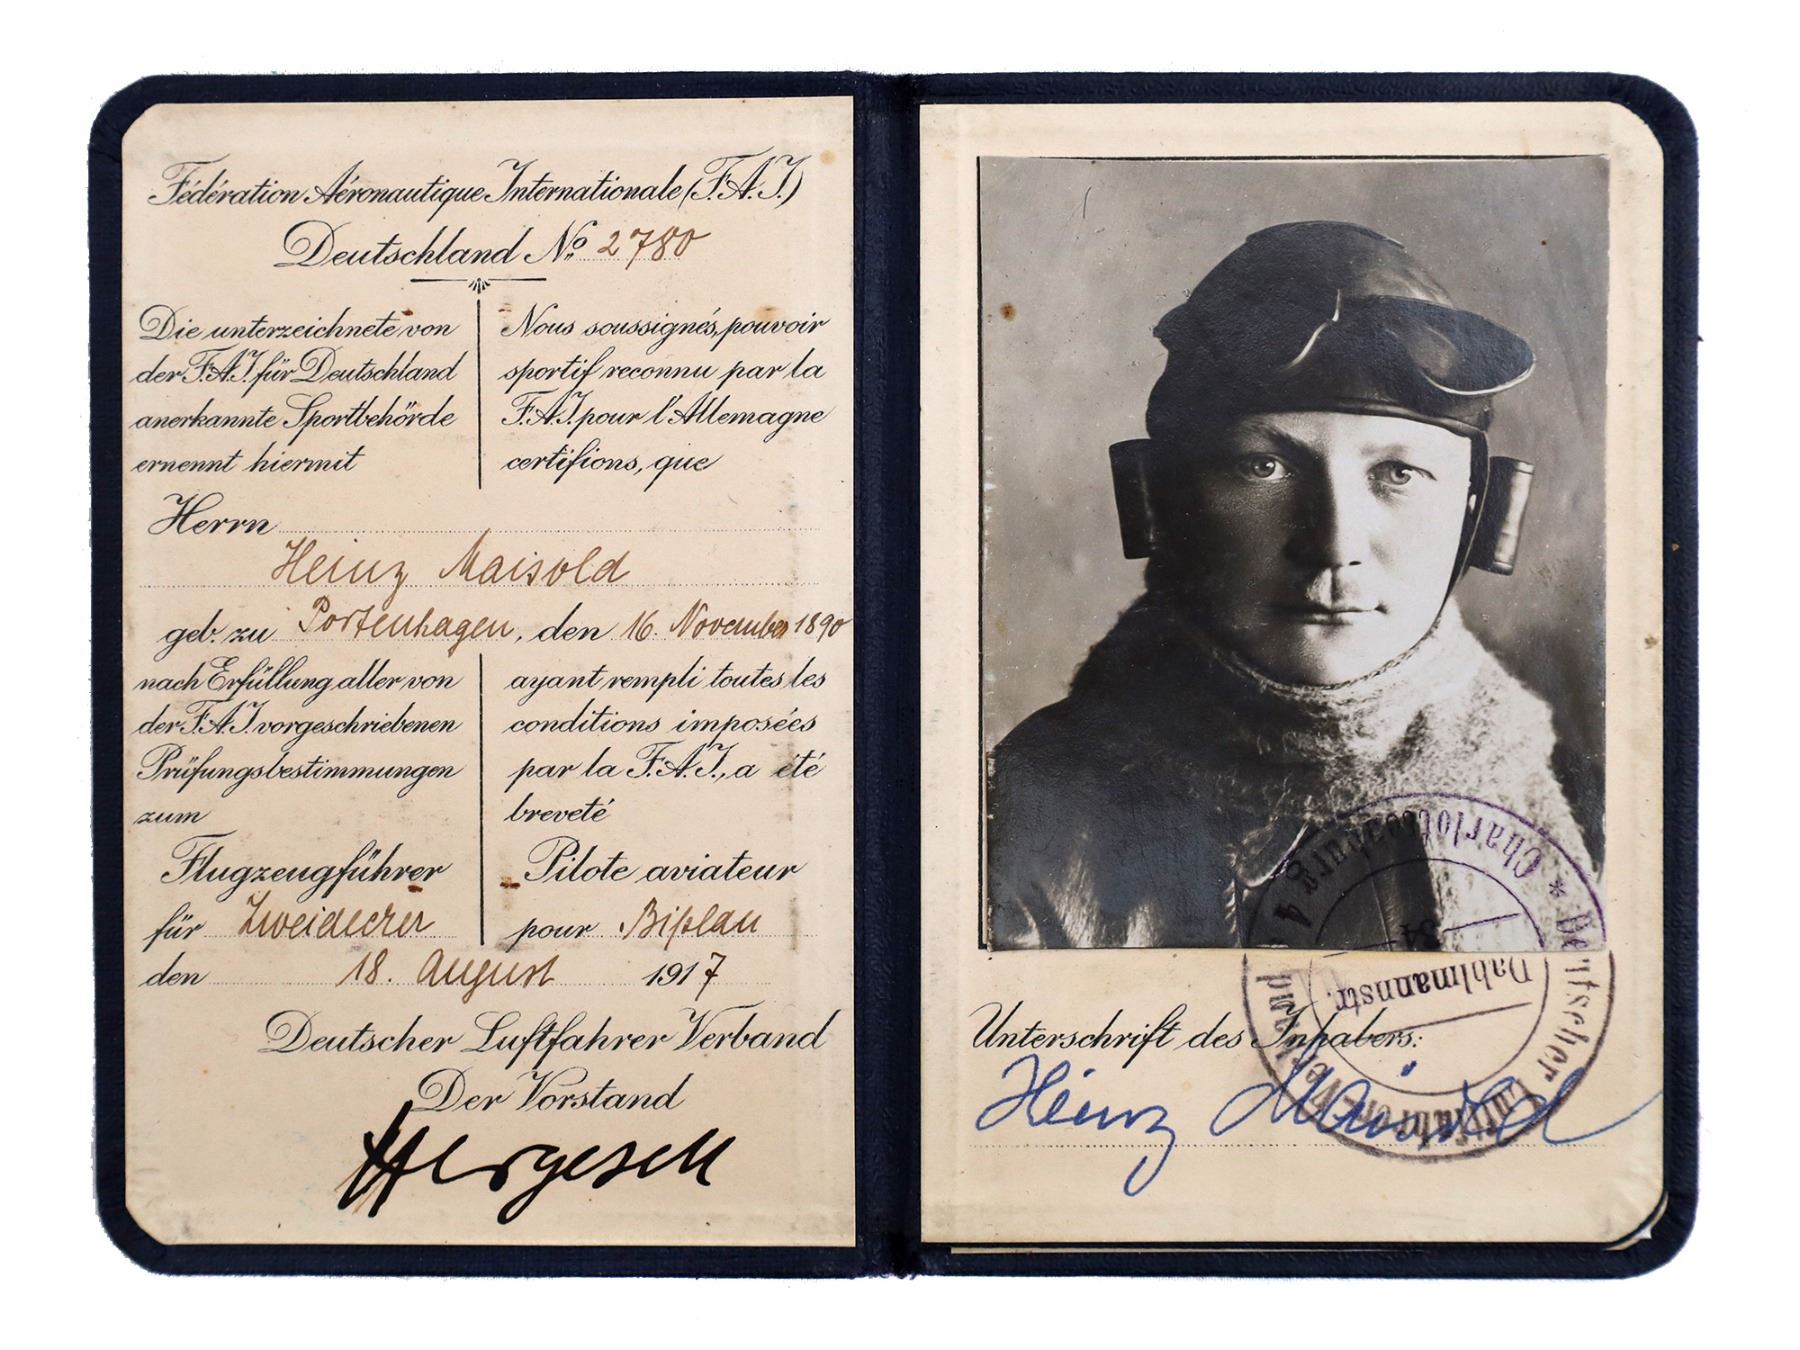 Fédération Aéronautique Internationale (F.A.I.)
Deutschland No. 2780
Die unterzeichnete von
der F.A.I. für Deutschland
anerkannte Sportbehörde
ernennt hiermit
Nous soussignés, pouvoir
sportif reconnu par la
F.A.I. pour l'Allemagne
certifions, que
Herrn
Heinz Maisold
geb. zu Portenhagen, den 16. November 1890
nach Erfüllung aller von
der F.A.I. vorgeschriebenen
Prüfungsbestimmungen
zum
Flugzeugführer
für Zweidecker
ayant rempli toutes les
conditions imposées
par la F.A.I., a été
breveté
Pilote aviateur
pour Biplan
den 18. August 1917
Deutscher Luftfahrer Verband
Der Vorstand
Hergesell
Deutscher Luftfahrer-Verband
* Charlottenburg 4
Dahlmannstr.
34
Unterschrift des Inhabers:
Heinz Maisold